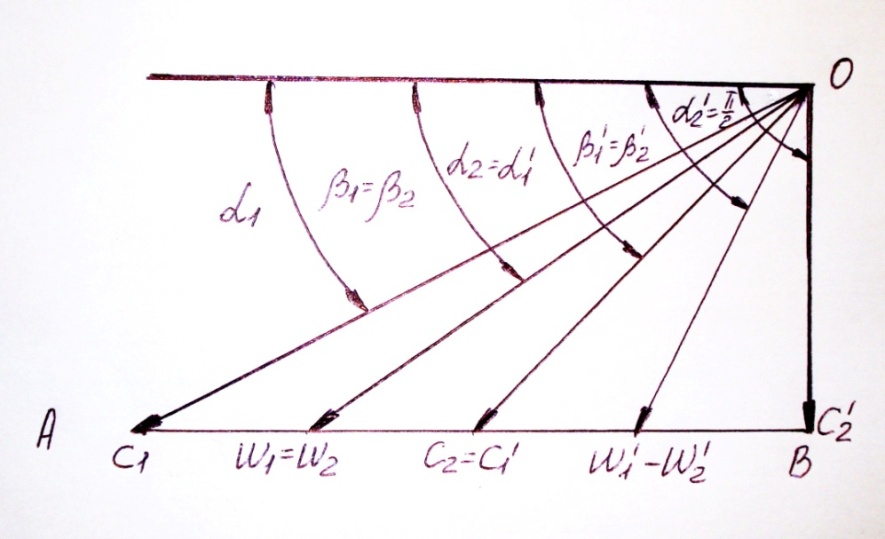 O
α₂'=π/2
β₁'=β₂'
α₂=α₁'
β₁=β₂
α₁
A
C₂'
C₁
W₁=W₂
C₂=C₁'
W₁'-W₂'
B